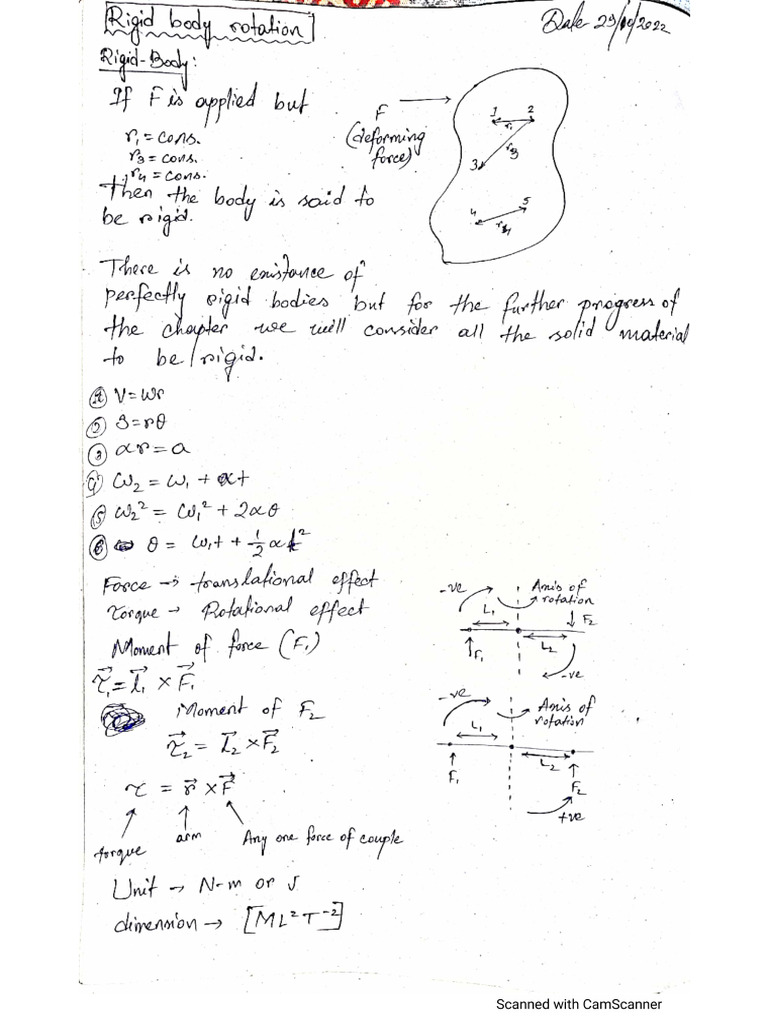 Rigid body rotation
Date 29/10/2022
Rigid-Body:
If F is applied but
r₁ = cons.
r₃ = cons.
r₄ = cons.
Then the body is said to
be rigid.
F
(deforming
force)
1 2
r₁
r₃
3
4 5
r₄
There is no existance of
perfectly rigid bodies but for the further progress of
the chapter we will consider all the solid material
to be rigid.
① V = ωr
② S = rθ
③ αr = a
④ ω₂ = ω₁ + αt
⑤ ω₂² = ω₁² + 2αθ
⑥ θ = ω₁t + ½ αt²
Force → translational effect
Torque → Rotational effect
Moment of force (F₁)
τ⃗₁ = l⃗₁ × F⃗₁
Moment of F₂
τ⃗₂ = l⃗₂ × F⃗₂
τ = r⃗ × F⃗
torque
arm
Any one force of couple
Unit → N-m or J
dimension → [ML²T⁻²]
-ve
Axis of
rotation
L₁
F₂
F₁
L₂
-ve
-ve
Axis of
rotation
L₁
L₂
F₁
F₂
+ve
Scanned with CamScanner